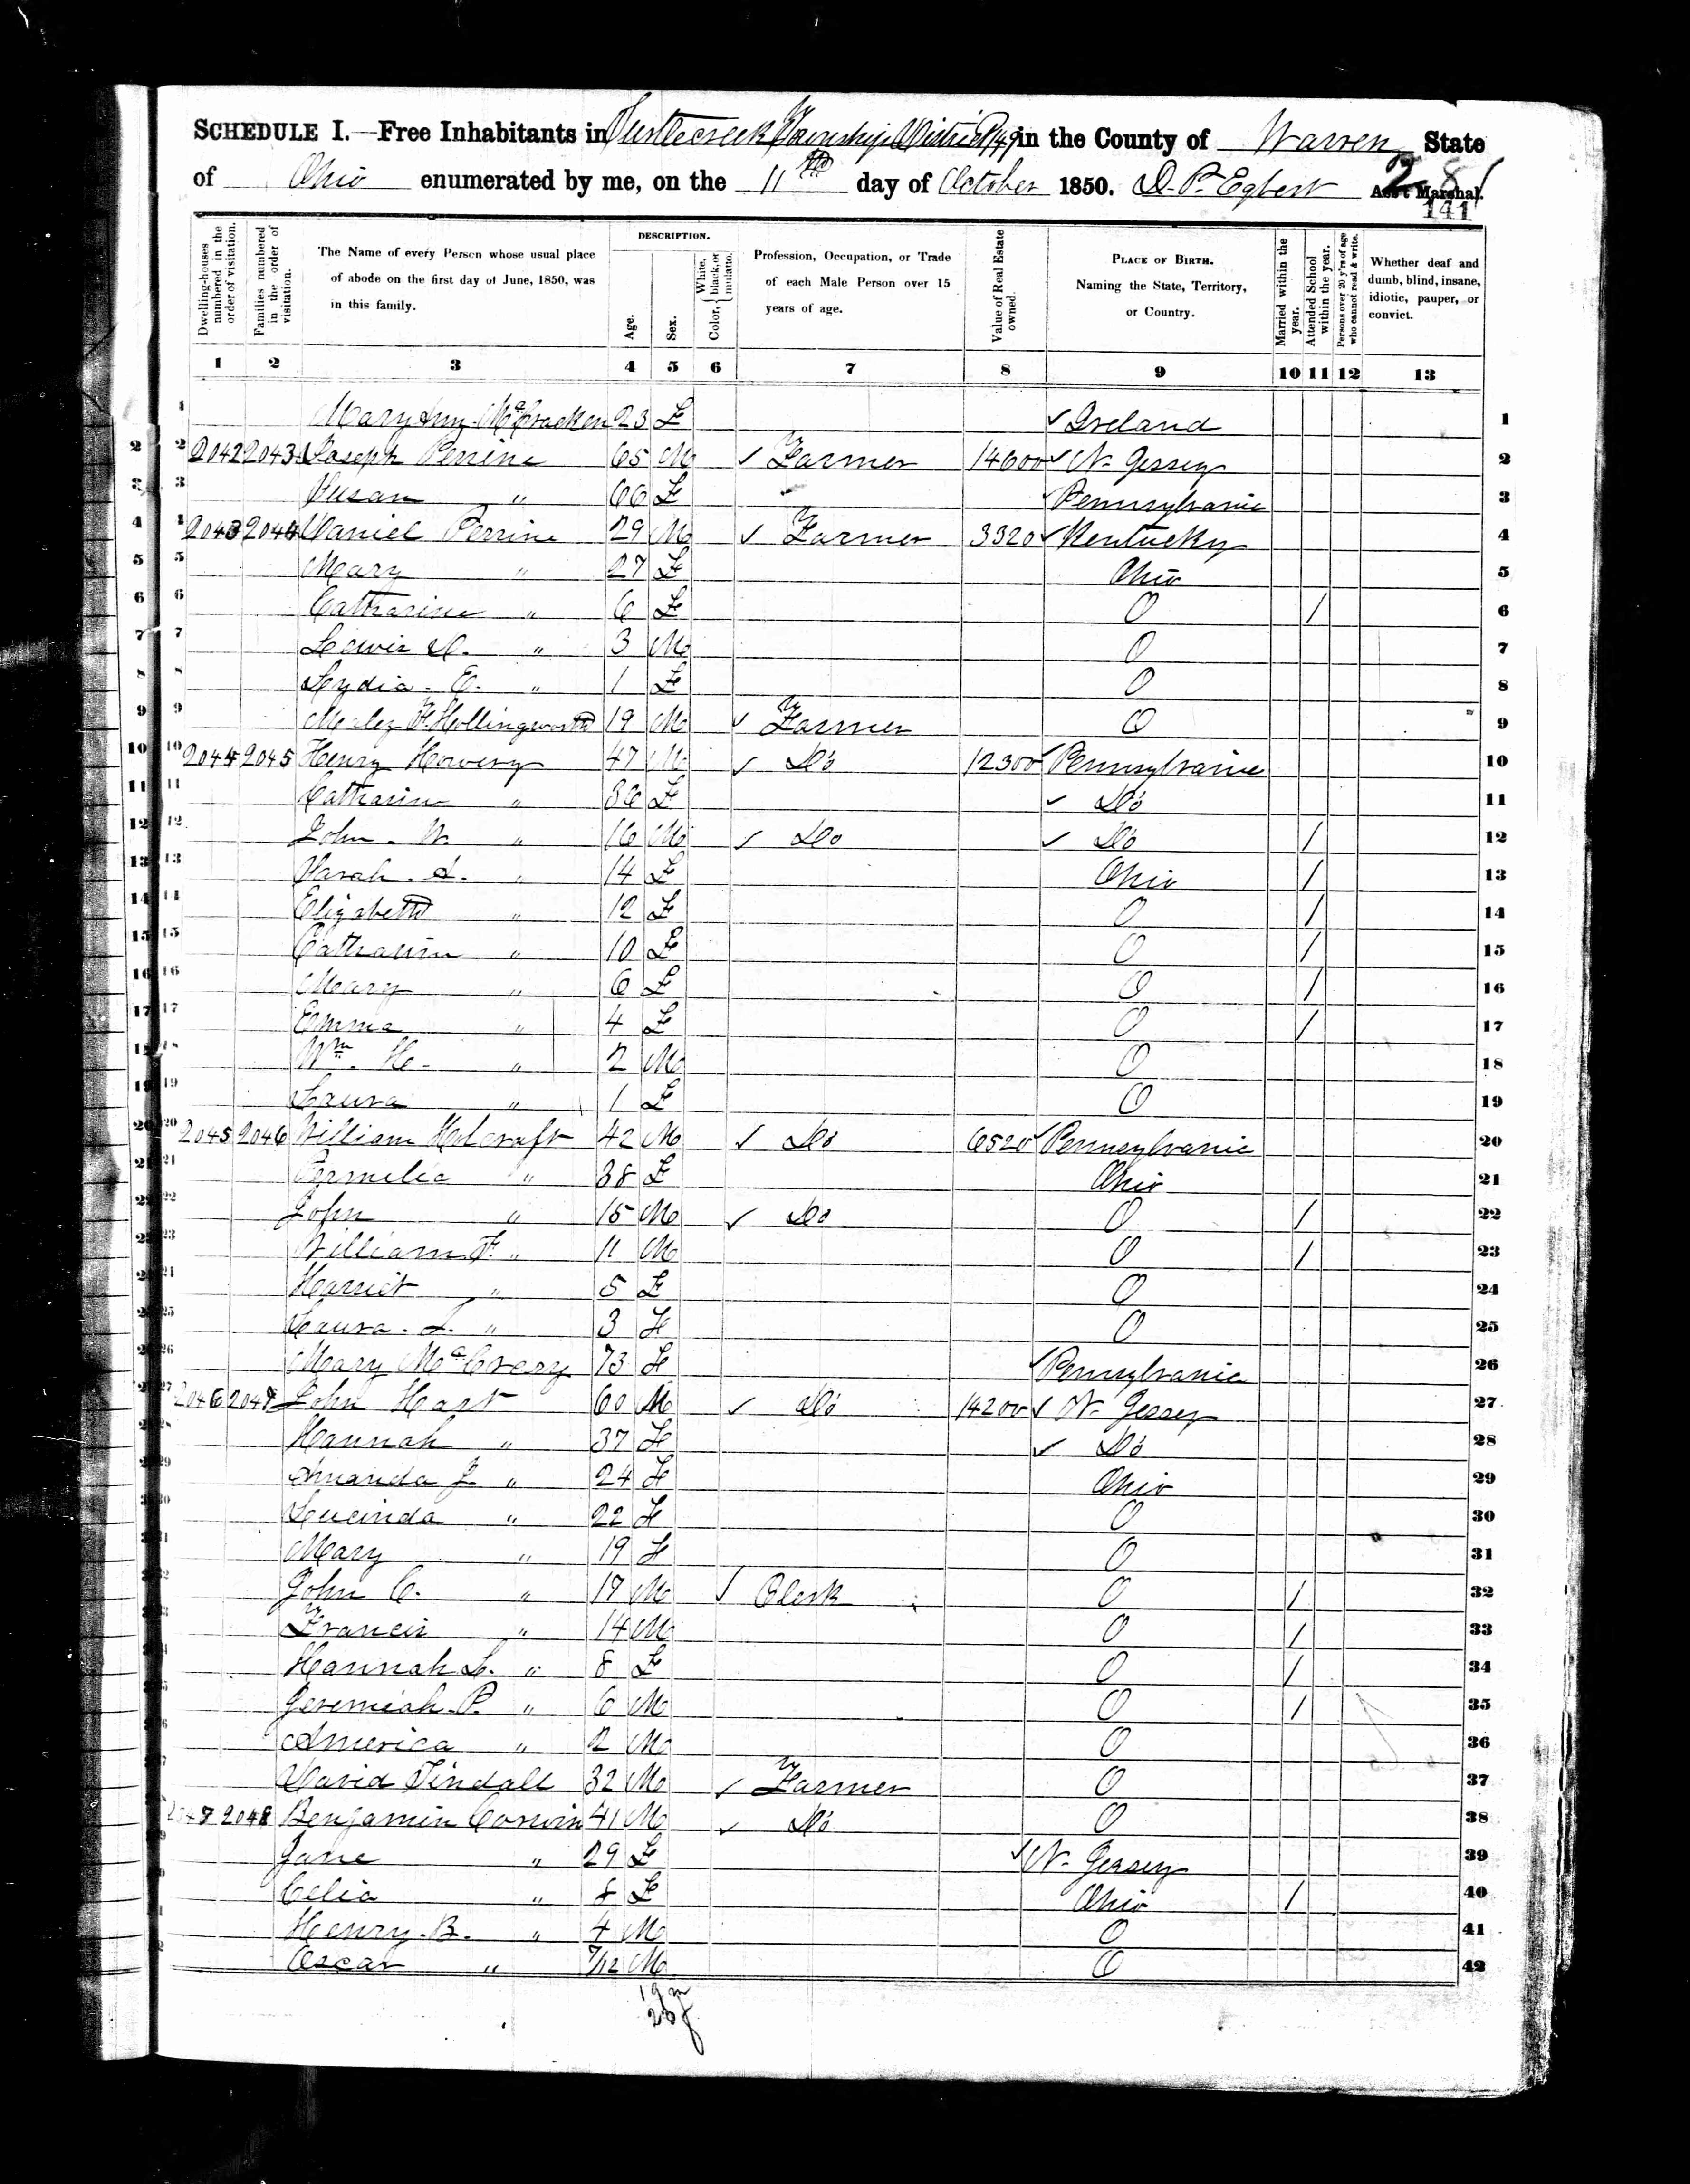 SCHEDULE I.—Free Inhabitants in Turtlecreek Township District in the County of Warren State
of Ohio enumerated by me, on the 11th day of October 1850. D. P. Egbert Ass't Marshal.
141
Dwelling-houses numbered in the order of visitation.
Families numbered in the order of visitation.
The Name of every Person whose usual place of abode on the first day of June, 1850, was in this family.
DESCRIPTION.
Age.
Sex.
Color, { White, black, or mulatto.
Profession, Occupation, or Trade of each Male Person over 15 years of age.
Value of Real Estate owned.
PLACE OF BIRTH. Naming the State, Territory, or Country.
Married within the year.
Attended School within the year.
Persons over 20 y'rs of age who cannot read & write.
Whether deaf and dumb, blind, insane, idiotic, pauper, or convict.
1 2 3 4 5 6 7 8 9 10 11 12 13
1 Mary Ann McCracken 23 F ✓ Ireland 1
2 2042 2043 Joseph Perrine 65 M ✓ Farmer 14600 ✓ N. Jersey 2
3 Susan " 66 F ✓ Pennsylvania 3
4 2043 2044 Daniel Perrine 29 M ✓ Farmer 3320 ✓ Kentucky 4
5 Mary " 27 F Ohio 5
6 Catharine " 6 F O / 6
7 Lewis " 3 M O 7
8 Lydia. E. " 1 F O 8
9 Hollingsworth 19 M ✓ Farmer O 9
10 2044 2045 Henry Howery 47 M ✓ Do 12300 ✓ Pennsylvania 10
11 Catharin " 36 F ✓ Do 11
12 John. W. " 16 M ✓ Do ✓ Do / 12
13 Sarah. A. " 14 F Ohio / 13
14 Elizabeth " 12 F O / 14
15 Catharin " 10 F O / 15
16 Mary " 6 F O / 16
17 Emma " 4 F O / 17
18 Wm. H. " 2 M O 18
19 Laura " 1 F O 19
20 2045 2046 William Holcraft 42 M ✓ Do 6520 ✓ Pennsylvania 20
21 Permelia " 38 F Ohio 21
22 John " 15 M ✓ Do O / 22
23 William F. " 11 M O / 23
24 Harriet " 5 F O 24
25 Laura. " 3 F O 25
26 Mary McCrery 73 F ✓ Pennsylvania 26
27 2046 2047 John Hart 60 M ✓ Do 14200 ✓ N. Jersey 27
28 Hannah " 37 F ✓ Do 28
29 Amanda J " 24 F Ohio 29
30 Lucinda " 22 F O 30
31 Mary " 19 F O 31
32 John C. " 17 M ✓ Clerk O / 32
33 Francis " 14 M O / 33
34 Hannah L. " 8 F O / 34
35 Jeremiah. P. " 6 M O / 35
36 America " 2 M O 36
37 David Tindall 32 M ✓ Farmer O 37
38 2047 2048 Benjamin Corwin 41 M ✓ Do O 38
39 Jane " 29 F ✓ N. Jersey 39
40 Celia " 8 F Ohio / 40
41 Henry. B. " 4 M O 41
42 Oscar " 7/12 M O 42
19 m
23 f